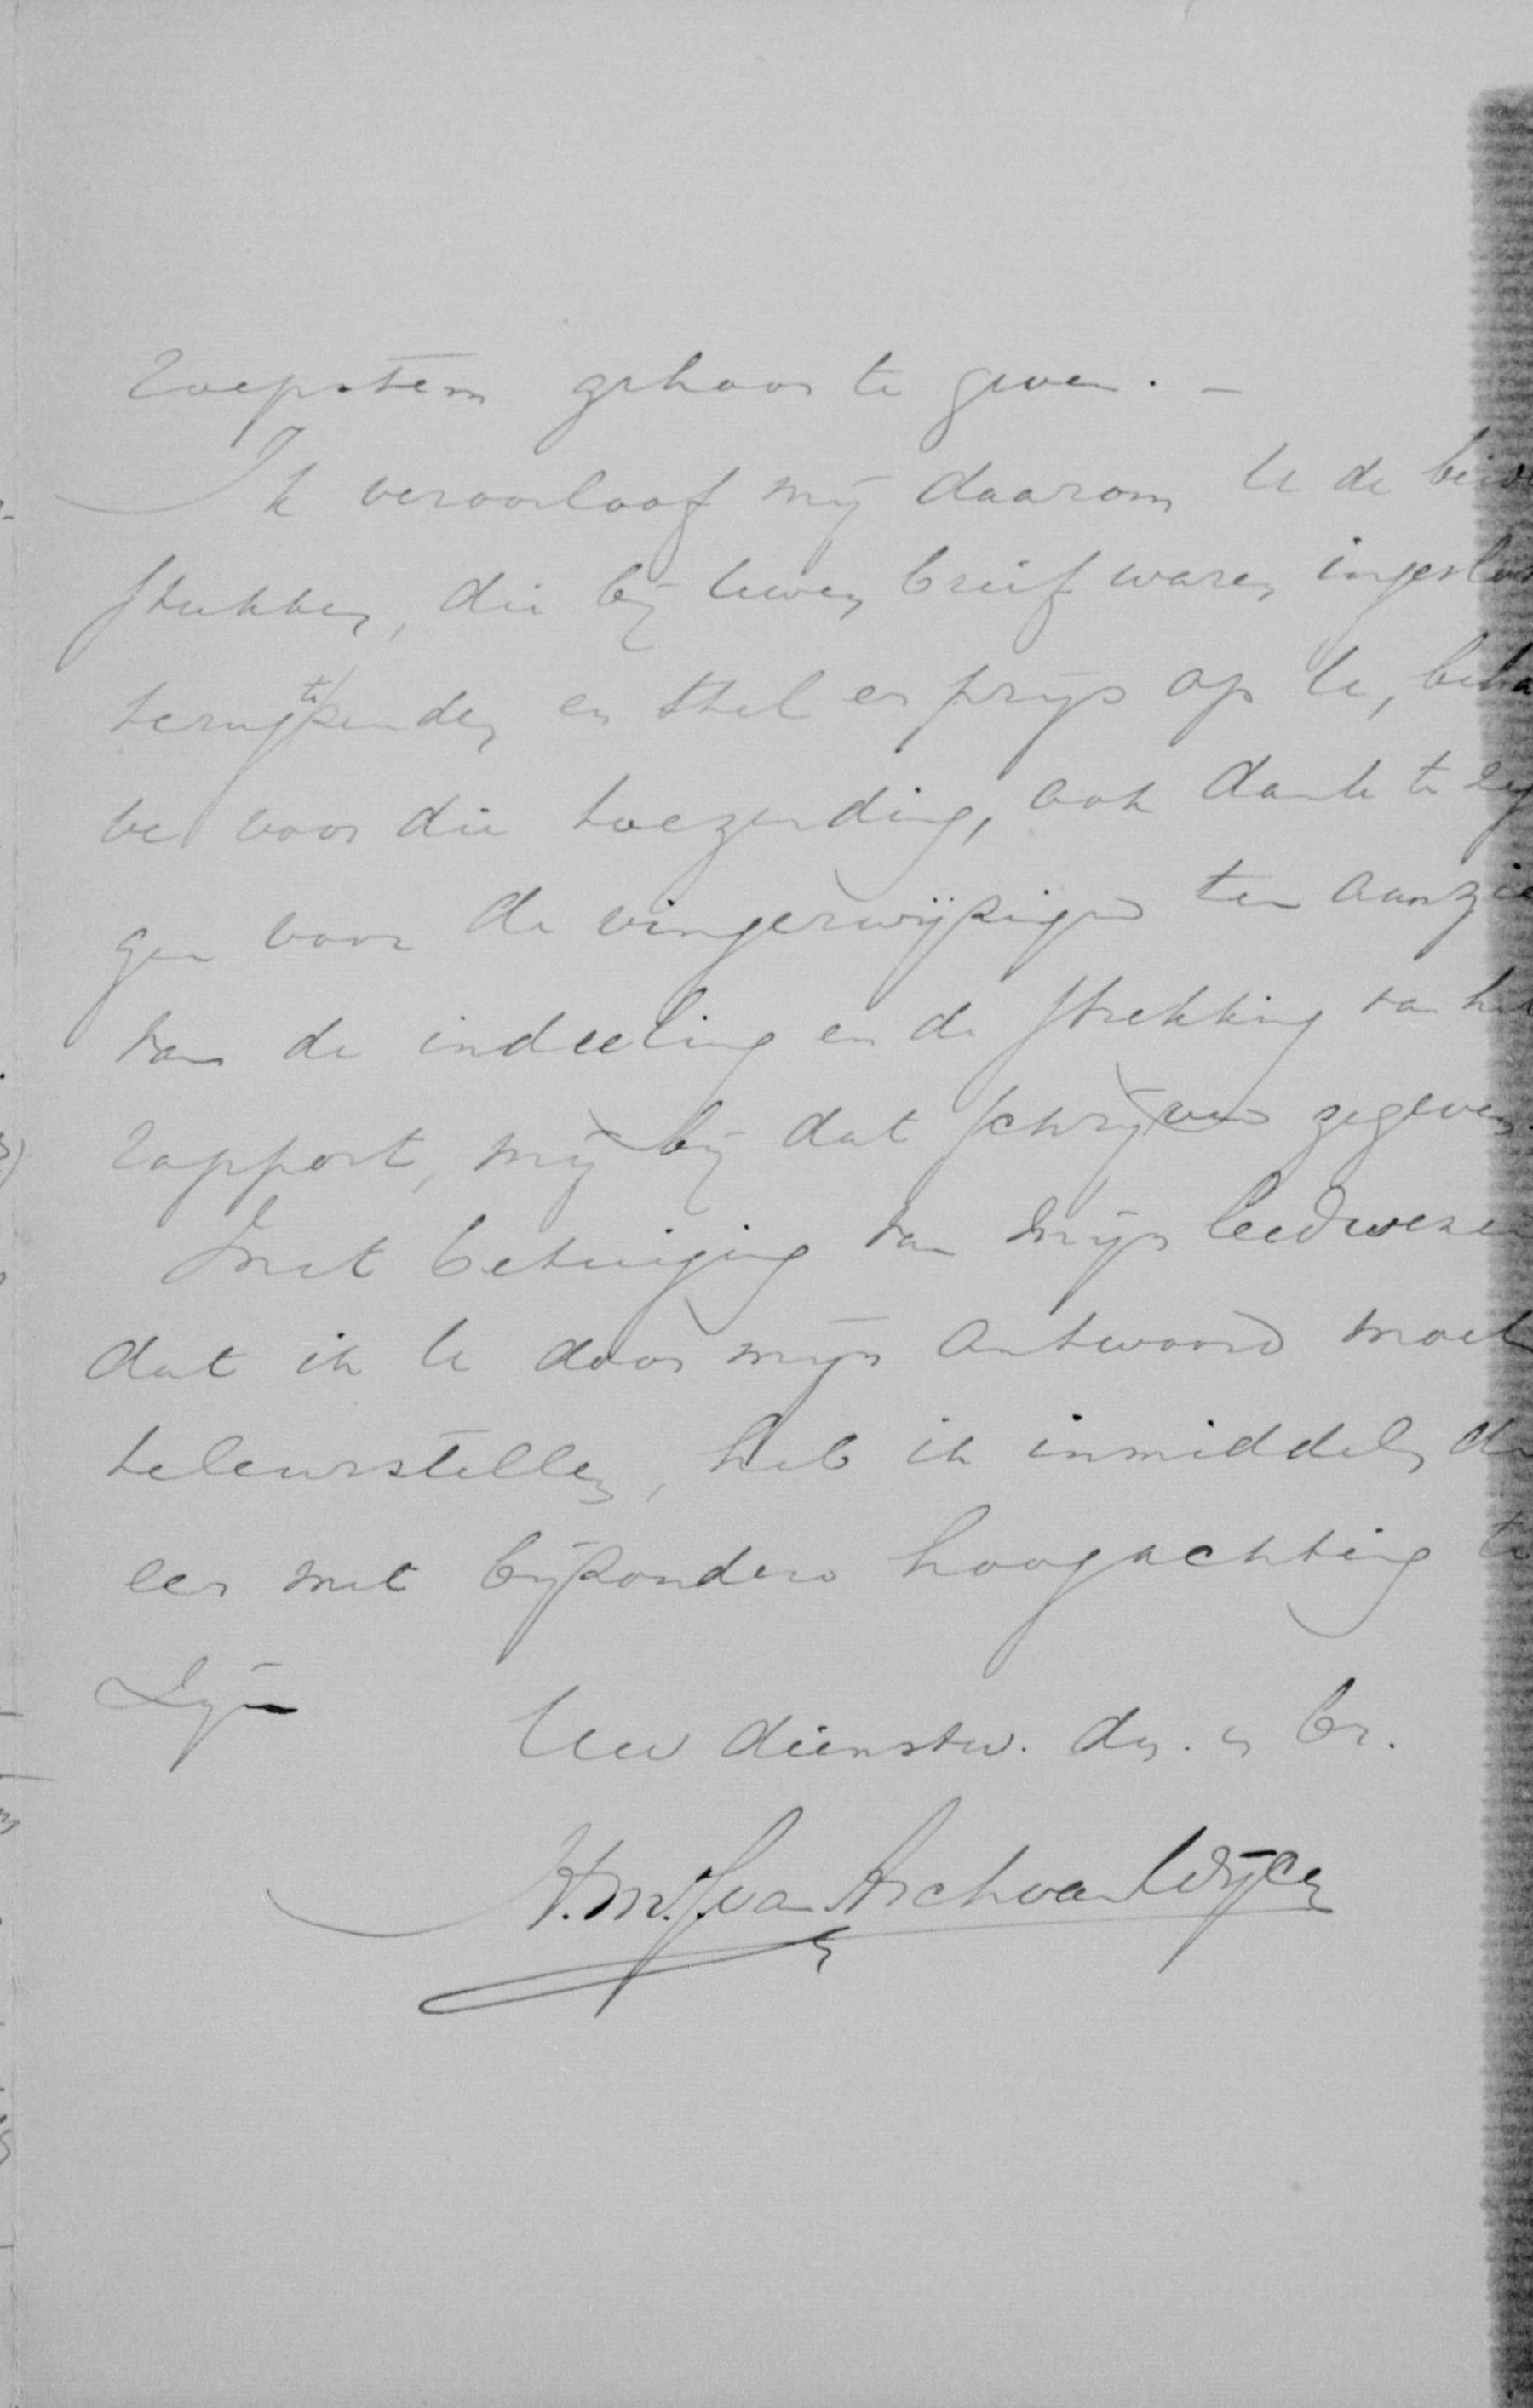 roepstem gehoor te geven. –
Ik veroorloof mij daarom U de beide
stukken, die bij Uwen brief waren ingeslo
terug te zenden en stel er prijs op U, beha
ve voor die toezending, ook dank te zeg
gen voor de vingerwijzigen ten aanzie
van de indeeling en de strekking van het
rapport, mij bij dat schrijven gegeven.
Met betuiging van mijn leedwezen
dat ik U door mijn antwoord moet
teleurstellen, heb ik inmiddels de
eer met bijzondere hoogachting te
zijn
Uw dienstw. dn. en br.
H. M. J. van Asch van Wijck